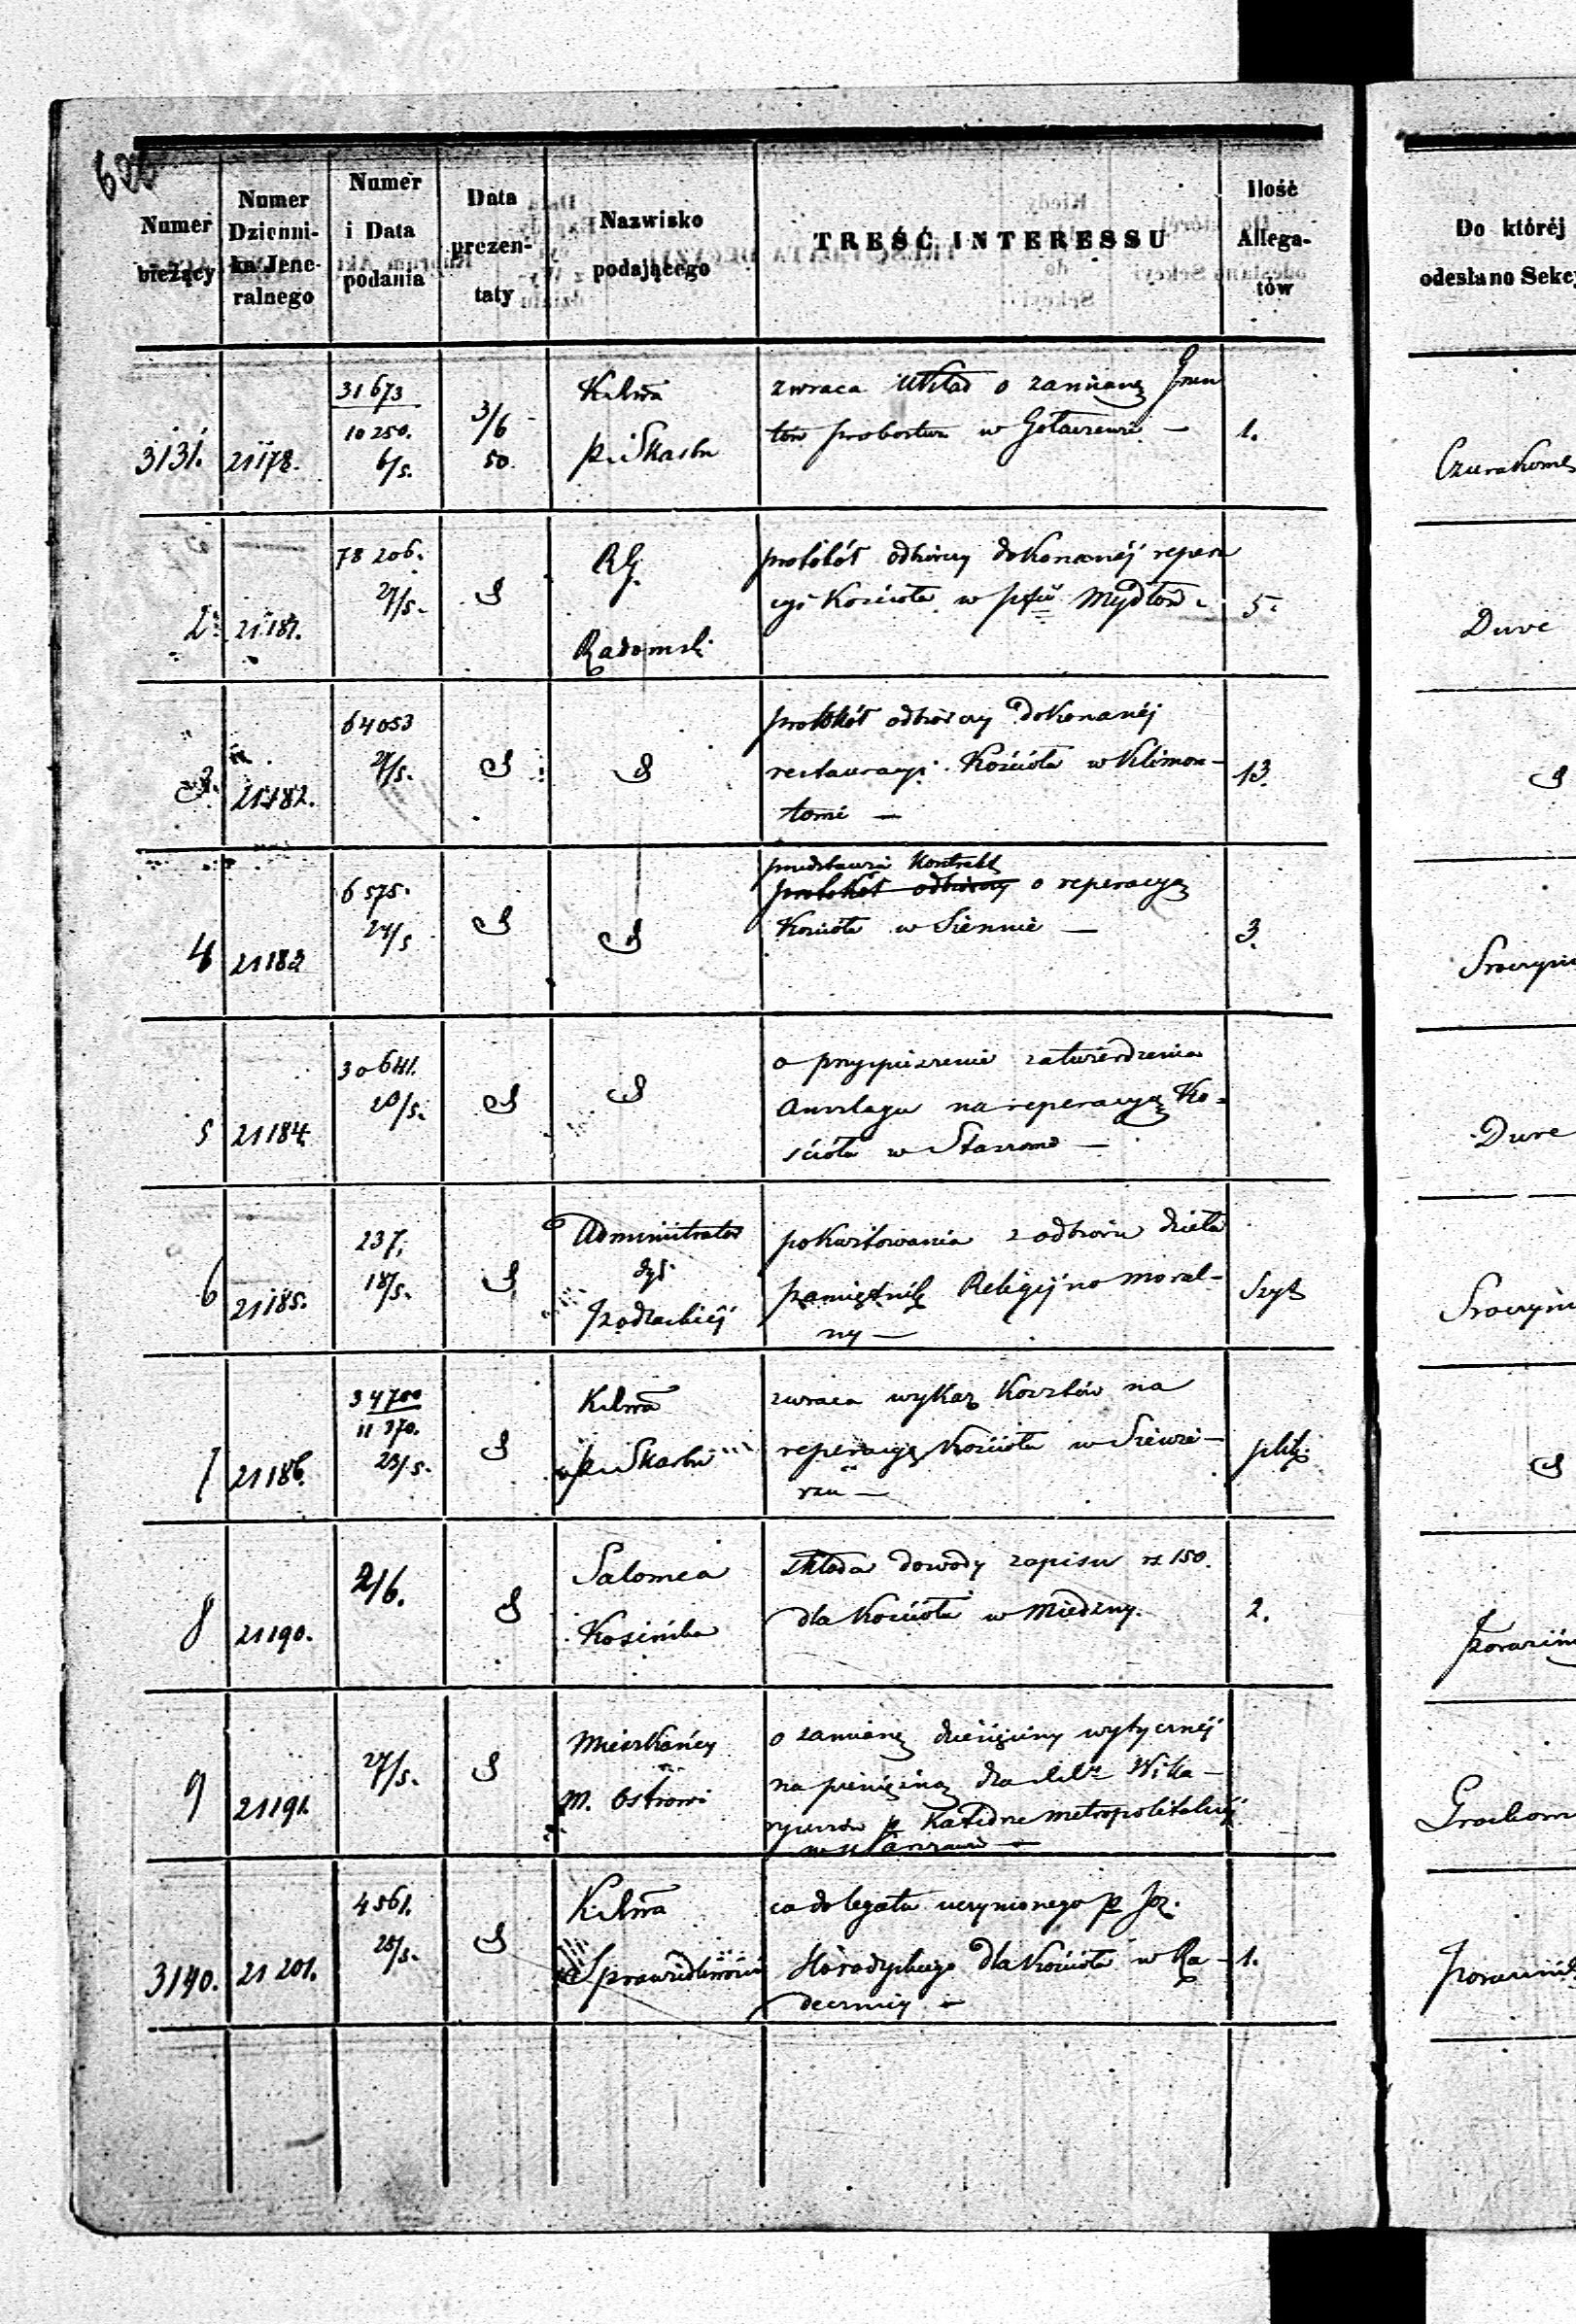 626
Numer bieżący
Numer Dzienni-ka Jene-ralnego
Numer i Data podania
Data prezen-taty
Nazwisko podającego
TREŚĆ INTERESSU
Ilość Allega-tów
Do któréj odesłano Sekcy
3131. 21178. 31673 10250. 6/5. 3/6 50. K. R. P. i Skarbu
zwraca układ o zamianę Grun
tów probostwa w Gołaczewie — 1.
2. 21181. 78206. 27/5. RG. Radomski
protokół odbiorczy dokonanéj repera
cyi Kościoła w Mydłow 5. Dure
3. 21182. 64053 27/5.
protokół odbiorczy dokonanéj
restauracyi Kościoła w Klimon-
towie — 13.
4 21183 6575. 24/5
przedstawia Kontrakt
protokół odbiorczy o reperacyą
Kościoła w Siennie — 3.
5 21184 30641. 20/5.
o przyspieszenie zatwierdzenia
Anszlagu na reperacyą Ko-
ścioła w — Dure
6 21185. 237. 18/5. Administrator dyi Podlaskiéj
pokwitowania z odbioru dzieła
pamiętnik Religijno moral-
ny — Szyt
7 21186. 34700 11370. 23/5. K. R. P. i Skarbu
zwraca wykaz Kosztów na
reperacyę Kościoła w Siewie-
rzu — plik.
8 21190. 2/6. Salomea Kosińska
składa dowody zapisu rs 150.
dla Kościoła w Miedzny. 2.
9 21191. 27/5. Mieszkańcy m. Ostrowi
o zamianę dziesięciny wytycznéj
na pieniężną dla Wika-
ryuszów p Katedrze metropolitalnéj
w Warszawie —
3140. 21201. 4561. 25/5. K. R. Sprawiedliwości
co do legatu uczynionego p Joz.
Horodyskiego dla Kościoła w Ra-
decznicy — 1.